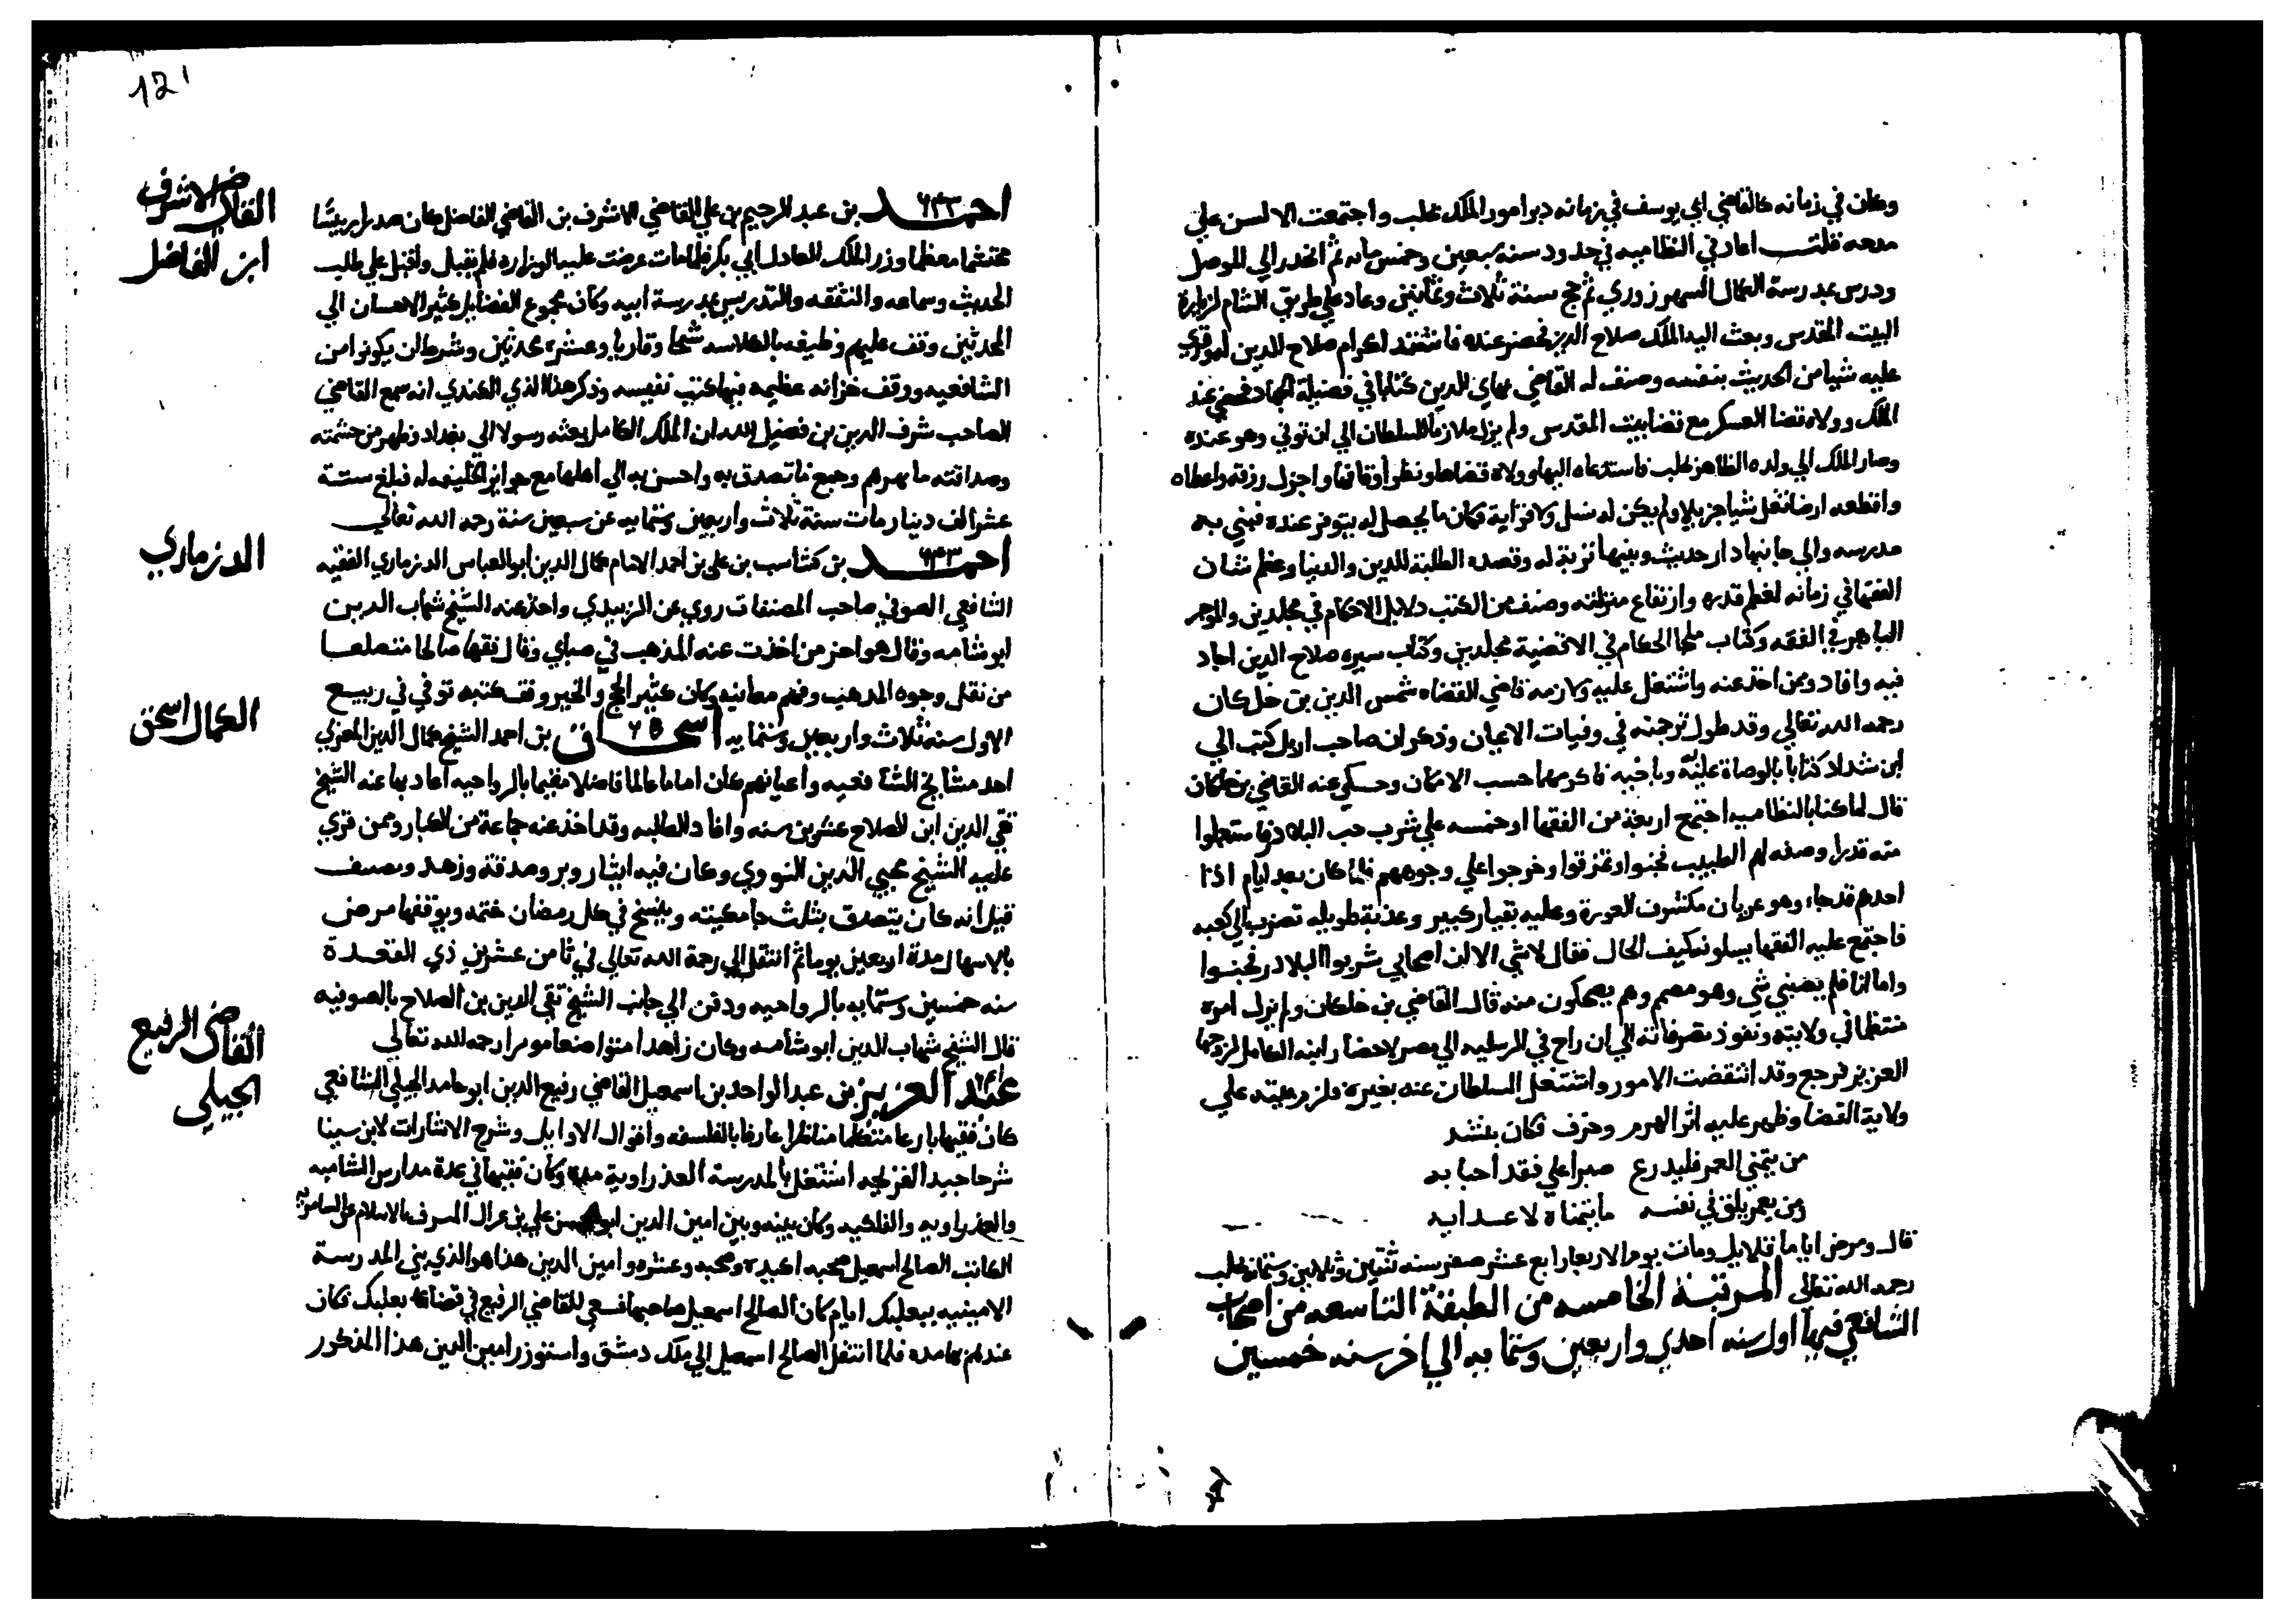 وكان في زمانه كالقاضي ابي يوسف في زمانه دبر امور الملك بحلب واجتمعت الالسن علي
مدحه قلت اعاد في النظاميه في حدود سنه سبعين وخمس مايه ثم انحدر الي الموصل
ودرس بمدرسة الكمال الشهرزوري ثم حج سنة ثلاث وثمانين وعاد علي طريق الشام لزيارة
البيت المقدس وبعث اليه الملك صلاح الدين فحضر عنده اكرام صلاح الدين له وقري
عليه شيا من الحديث بنفسه وصنف له القاضي بهاي الدين كتابا في فضيلة الجهاد عند
الملك وولاه قضا العسكر مع قضا بيت المقدس ولم يزل ملازما للسلطان الي ان توفي وهو عنده
وصار الملك الي ولده الظاهر بحلب فاستدعاه اليها وولاه قضاها ونظر اوقافها واجزل رزقه واعطاه
واقطعه ارضا تغل شيا جزيلا ولم يكن له نسل ولا قرابة فكان ما يحصل له يتوفر عنده فبني به
مدرسه والي جانبها دار حديث وبينهما تربة له وقصده الطلبة للدين والدنيا وعظم شان
الفقها في زمانه لعظم قدره وارتفاع منزلته وصنف من الكتب دلايل الاحكام في مجلدين والموجز
الباهر في الفقه وكتاب ملجا الحكام في الاقضية مجلدين وكتاب سيره صلاح الدين اجاد
فيه وافاد وممن اخذ عنه واشتغل عليه ولازمه قاضي القضاه شمس الدين بن خلكان
رحمه الله تعالي وقد طول ترجمته في وفيات الاعيان وذكر ان صاحب اربل كتب الي
ابن شداد كتابا بالوصاة عليه وباخيه فاكرمهما حسب الامكان وحكي عنه القاضي بن خلكان
قال لما كنا بالنظاميه اجتمع اربعة من الفقها او خمسه علي شرب حب البلادر فاستعملوا
منه قدرا وصفه لهم الطبيب فجنوا وتمزقوا وخرجوا علي وجوههم فلما كان بعد ايام اذا
احدهم قد جاء وهو عريان مكشوف العورة وعليه بقيار كبير وعذبة طويله تضرب الي كعبه
فاجتمع عليه الفقها يسلونه كيف الحال فقال لا شي الا ان اصحابي شربوا البلادر فجنوا
واما انا فلم يصبني شي وهو مصمم وهم يضحكون منه قال القاضي بن خلكان ولم يزل امره
منتظما في ولايته ونفوذ تصرفاته الي ان راح في الرسليه الي مصر لاحضار ابنه الكامل لزوجها
العزيز فرجع وقد انتقضت الامور واشتغل السلطان عنه بغيره فلزم بيته علي
ولاية القضا وظهر عليه اثر الهرم وخرف فكان ينشد
من يتمني العمر فليدرع صبرا علي فقد احبابه
ومن يعمر يلق في نفسه ما يتمناه لاعدايه
قال ومرض اياما قلايل ومات يوم الاربعا رابع عشر صفر سنه ثنتين وثلاثين وستمايه بحلب
رحمه الله تعالي المرتبة الخامسه من الطبقة التاسعه من اصحاب
الشافعي فيها اول سنه احدي واربعين وستمايه الي اخر سنه خمسين
12
القاضي الاشرف
ابن الفاضل
احمد ٦٤٣ بن عبد الرحيم بن علي القاضي الاشرف بن القاضي الفاضل كان صدرا رييسا
محتشما معظما وزر الملك العادل ابي بكر فلما مات عرضت عليه الوزاره فلم يقبل واقبل علي طلب
الحديث وسماعه والتفقه والتدريس بمدرسة ابيه وكان مجموع الفضايل كثير الاحسان الي
المحدثين وقف عليهم وظيفه بالكلاسه شيخا وقاريا وعشره محدثين وشرط ان يكونوا من
الشافعيه ووقف خزانه عظيمه فيها كتب نفيسه وذكر هذا الذي الكندي انه سمع القاضي
الصاحب شرف الدين بن فضيل الله ان الملك الكامل بعثه رسولا الي بغداد فظهر من حشمته
وصدقته ما بهرهم وجمع ما تصدق به واحسن به الي اهلها مع جوايز الخليفه له فبلغ ستة
عشر الف دينار مات سنة ثلاث واربعين وستمايه عن سبعين سنة رحمه الله تعالي
الدزماري
احمد ٦٤٣ بن كشاسب بن علي بن احمد الامام كمال الدين ابو العباس الدزماري الفقيه
الشافعي الصوفي صاحب المصنفات روي عن الزبيدي واخذ عنه الشيخ شهاب الدين
ابو شامه وقال هو اخر من اخذت عنه المذهب في صباي وقال فقيها صالحا متضلعا
من نقل وجوه المذهب وفهم معانيه وكان كثير الحج والخير وقف كتبه توفي في ربيع
الكمال اسحق
الاول سنه ثلاث واربعين وستمايه اسحاق بن احمد الشيخ كمال الدين المغربي
احد مشايخ الشافعيه واعيانهم كان اماما عالما فاضلا مقيما بالرواحيه اعاد بها عنه الشيخ
تقي الدين ابن الصلاح عشرين سنه وافاد الطلبه وقد اخذ عنه جماعة من الكبار وممن قري
عليه الشيخ محيي الدين النووي وكان فيه ايثار وبر وصدقة وزهد وتصنف
قيل انه كان يتصدق بثلث جامكيته وينسخ في كل رمضان ختمه ويوقفها مرض
بالاسهال مدة اربعين يوما ثم انتقل الي رحمة الله تعالي في ثامن عشرين ذي القعدة
سنه خمسين وستمايه بالرواحيه ودفن الي جانب الشيخ تقي الدين بن الصلاح بالصوفيه
قال الشيخ شهاب الدين ابو شامه وكان زاهدا متواضعا موثرا رحمه الله تعالي
القاضي الرفيع
الجيلي
عبد العزيز بن عبد الواحد بن اسمعيل القاضي رفيع الدين ابو حامد الجيلي الشافعي
كان فقيها بارعا متكلما مناظرا عارفا بالفلسفه واقوال الاوايل وشرح الاشارات لابن سينا
شرحا جيدا اشتغل بالمدرسة العذراوية مدة وكان فقيها في عدة مدارس الشاميه
والعذراويه والفلكيه وكان بينه وبين امين الدين ابو الحسن علي بن غزال بالاسلام
الكاتب الصالح اسمعيل صحبه ومحبه وعشره وامين الدين هذا هو الذي بني المدرسة
الامينيه ببعلبك ايام كان الصالح اسمعيل صاحبها فسعي للقاضي الرفيع في قضا بعلبك فكان
عندهم بها مده فلما انتقل الصالح اسمعيل الي ملك دمشق واستوزر امين الدين هذا المذكور